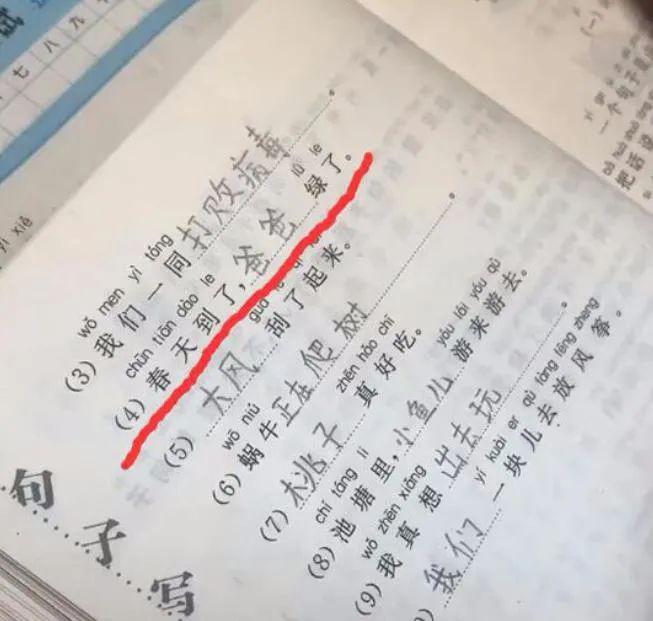 试
七 八 九
yì xiě
wǒ men yì tóng
(3) 我们一同打败病毒。
chūn tiān dào le lǜ le
(4) 春天到了，爸爸绿了。
(5) 大风刮了起来。
wō niú
(6) 蜗牛正在爬树。
zhēn hǎo chī
(7) 桃子真好吃。
chí táng lǐ yóu lái yóu qù
(8) 池塘里，小鱼儿游来游去。
wǒ zhēn xiǎng
(9) 我真想出去玩。
yí kuài er qù fàng fēng zheng
我们一块儿去放风筝。
句子写
(一)
一个句子
把话说